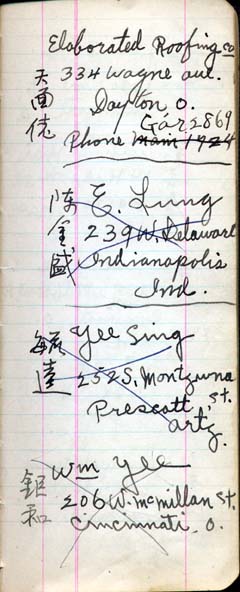 Elaborated Roofing co
天面佬
334 Wayne ave.
Dayton O.
Gar 2869
Phone Main 1924
陈金盛
E. Lung
239 W. Delaware
Indianapolis
Ind.
毓達
Yee Sing
252 S. Montzuma St.
Prescott,
Ariz.
鉅和
Wm Yee
206 W. McMillan St.
Cincinnati, O.